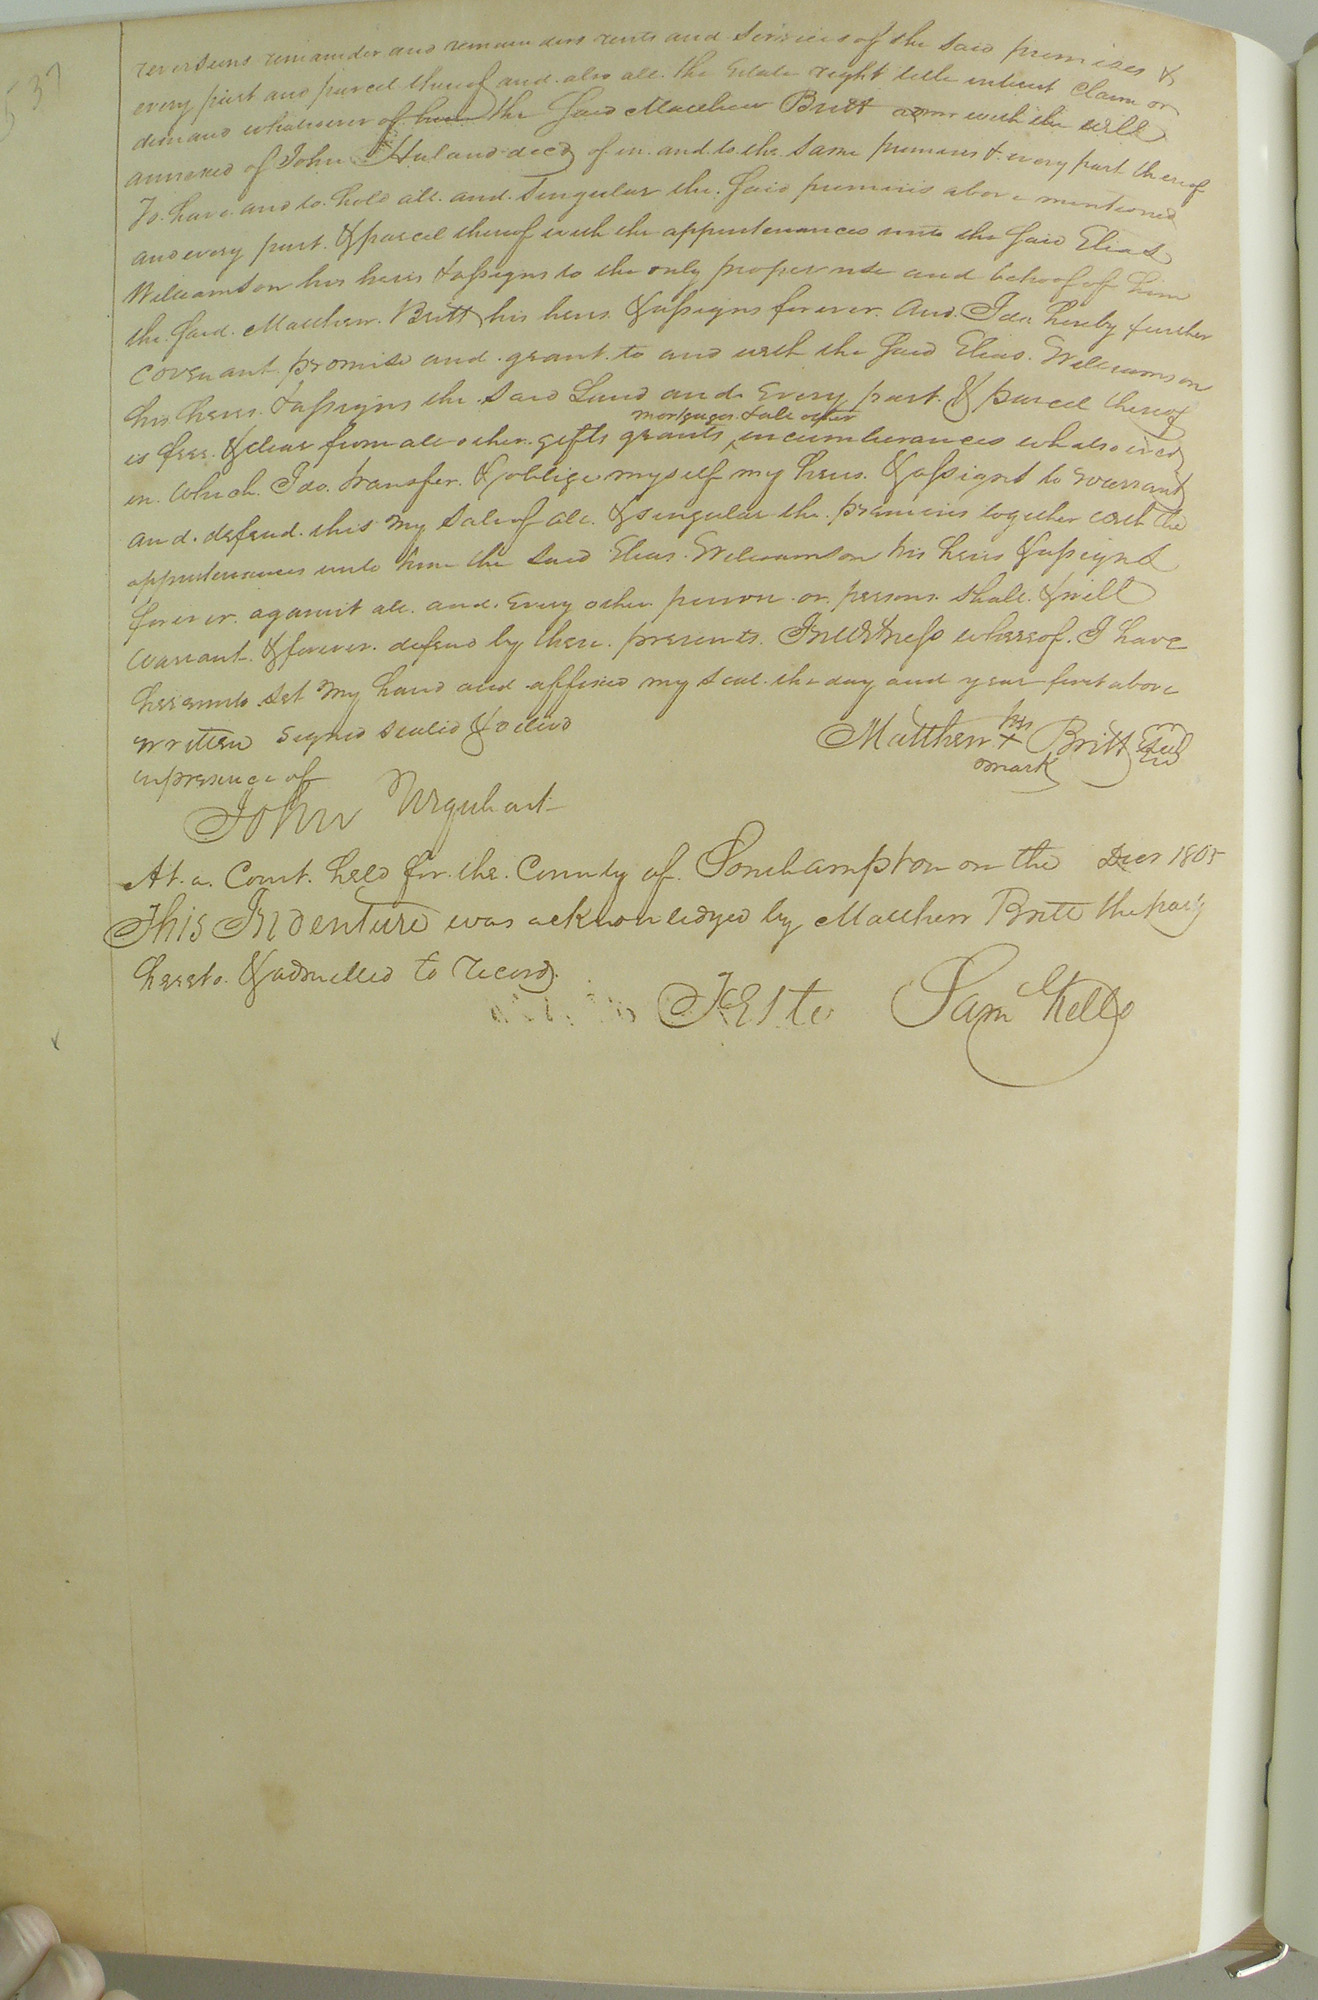 537
reversions remainder and remainders rents and services of the said premises &
every part and parcel thereof and also all the Estate right title interest claim or
demand whatsoever of him the said Matthew Britt adm with the will
annexed of John Huland decd of in and to the same premises & every part thereof
To have and to hold all and singular the said premises above mentioned
and every part & parcel thereof with the appurtenances unto the said Elias
Williamson his heirs & assigns to the only proper use and behoof of him
the said Matthew Britt his heirs & assigns forever And I do hereby further
covenant promise and grant to and with the said Elias Williamson
his heirs & assigns the said Land and Every part & parcel thereof
mortgages & all other
is free & clear from all other gifts grants incumberances whatsoever
in which I do transfer & oblige myself my heirs & assigns to warrant
and defend this my sale of all & singular the premises together with the
appurtenances unto him the said Elias Williamson his heirs & assigns
forever against all and Every other person or persons shall & will
warrant & forever defend by these presents In Witness whereof I have
hereunto set my hand and affixed my seal the day and year first above
written Signed sealed & delivd
in presence of
Matthew his + mark Britt Seal
John Urquhart
At a Court held for the County of Southampton on the Decr 1805
This Indenture was acknowledged by Matthew Britt the party
hereto & admitted to record
Teste Sam Kello